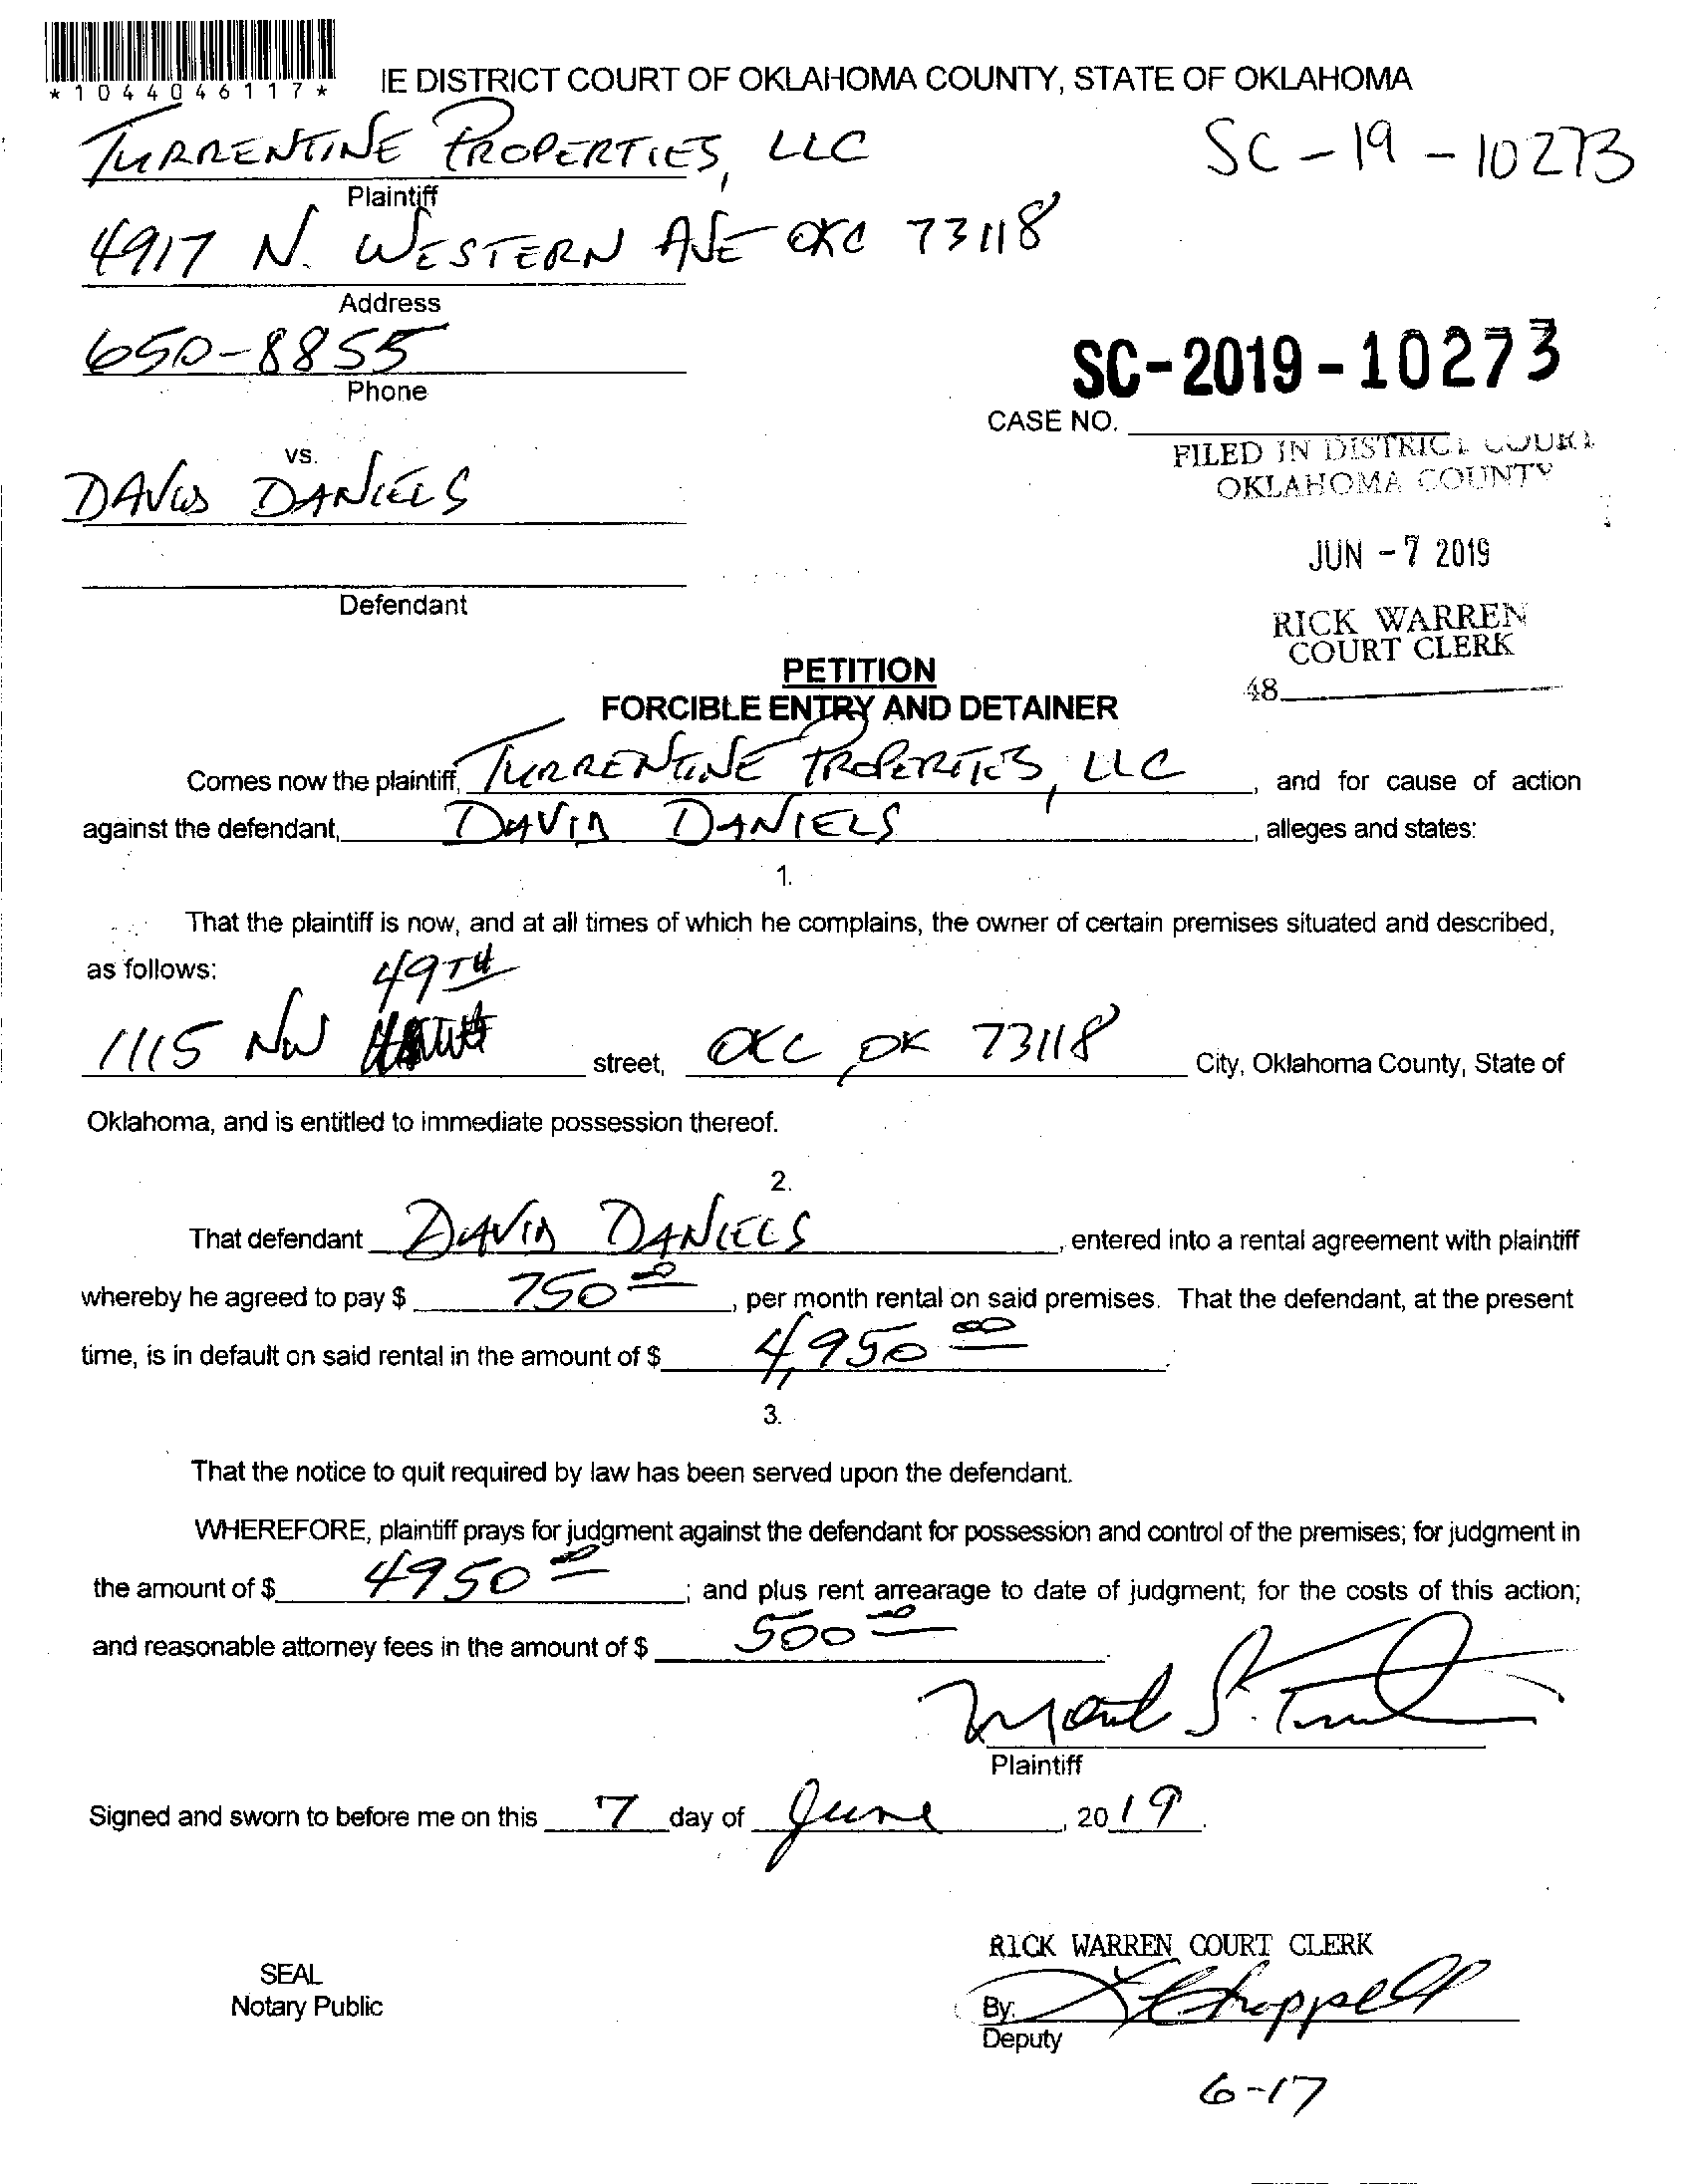 *1044046117*
IE DISTRICT COURT OF OKLAHOMA COUNTY, STATE OF OKLAHOMA
TURRENTINE PROPERTIES, LLC
SC-19-10273
Plaintiff
4917 N. WESTERN AVE OKC 73118
Address
650-8855
Phone
SC-2019-10273
CASE NO.
vs.
FILED IN DISTRICT COURT
OKLAHOMA COUNTY
DAVID DANIELS
JUN -7 2019
Defendant
RICK WARREN
COURT CLERK
48
PETITION
FORCIBLE ENTRY AND DETAINER
Comes now the plaintiff, TURRENTINE PROPERTIES, LLC, and for cause of action
against the defendant, DAVID DANIELS, alleges and states:
1.
That the plaintiff is now, and at all times of which he complains, the owner of certain premises situated and described,
as follows:
49TH
1115 NW street, OKC, OK 73118 City, Oklahoma County, State of
Oklahoma, and is entitled to immediate possession thereof.
2.
That defendant DAVID DANIELS, entered into a rental agreement with plaintiff
whereby he agreed to pay $ 750 00, per month rental on said premises. That the defendant, at the present
time, is in default on said rental in the amount of $ 4,950 00.
3.
That the notice to quit required by law has been served upon the defendant.
WHEREFORE, plaintiff prays for judgment against the defendant for possession and control of the premises; for judgment in
the amount of $ 4950 00; and plus rent arrearage to date of judgment; for the costs of this action;
and reasonable attorney fees in the amount of $ 500 00.
Plaintiff
Signed and sworn to before me on this 7 day of June, 2019.
RICK WARREN COURT CLERK
SEAL
Notary Public
By: Chappell
Deputy
6-17